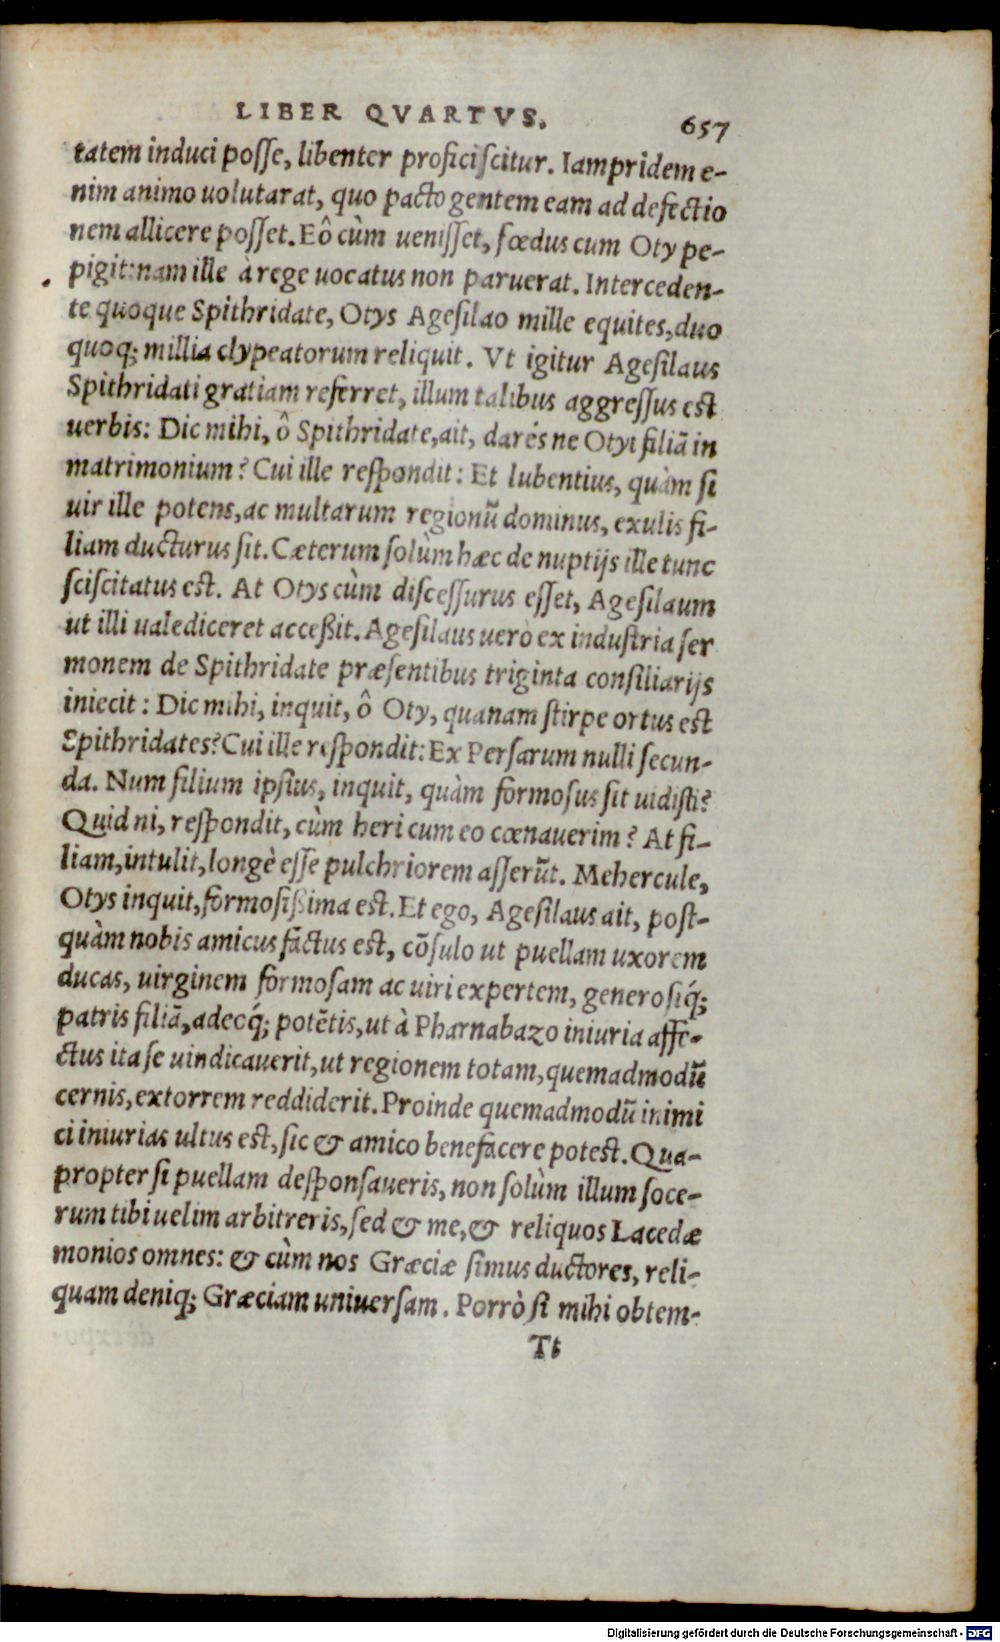 LIBER QVARTVS. 657
tatem induci posse, libenter proficiscitur. Iampridem e-
nim animo uolutarat, quo pacto gentem eam ad defectio
nem allicere posset. Eô cùm uenisset, fœdus cum Oty pe-
pigit: nam ille à rege uocatus non paruerat. Interceden-
te quoque Spithridate, Otys Agesilao mille equites, duo
quoq; millia clypeatorum reliquit. Vt igitur Agesilaus
Spithridati gratiam referret, illum talibus aggressus est
uerbis: Dic mihi, ô Spithridate, ait, darés ne Otyi filiā in
matrimonium? Cui ille respondit: Et lubentius, quàm si
uir ille potens, ac multarum regionū dominus, exulis fi-
liam ducturus sit. Cæterum solùm hæc de nuptijs ille tunc
sciscitatus est. At Otys cùm discessurus esset, Agesilaum
ut illi ualediceret acceßit. Agesilaus uerò ex industria ser
monem de Spithridate præsentibus triginta consiliarijs
iniecit: Dic mihi, inquit, ô Oty, quanam stirpe ortus est
Spithridates? Cui ille respondit: Ex Persarum nulli secun-
da. Num filium ipsius, inquit, quàm formosus sit uidisti?
Quid ni, respondit, cùm heri cum eo cœnauerim? At fi-
liam, intulit, longè esse pulchriorem asserūt. Mehercule,
Otys inquit, formosißima est. Et ego, Agesilaus ait, post-
quàm nobis amicus factus est, cōsulo ut puellam uxorem
ducas, uirginem formosam ac uiri expertem, generosiq́;
patris filiā, adeoq́; potētis, ut à Pharnabazo iniuria affe-
ctus ita se uindicauerit, ut regionem totam, quemadmodū
cernis, extorrem reddiderit. Proinde quemadmodū inimi
ci iniurias ultus est, sic & amico benefacere potest. Qua-
propter si puellam desponsaueris, non solùm illum soce-
rum tibi uelim arbitreris, sed & me, & reliquos Lacedæ
monios omnes: & cùm nos Græciæ simus ductores, reli-
quam deniq; Græciam uniuersam. Porrò si mihi obtem-
Tt
Digitalisierung gefördert durch die Deutsche Forschungsgemeinschaft - DFG